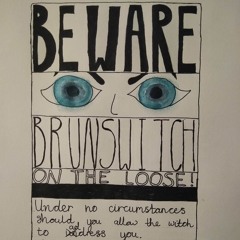 BEWARE
BRUNSWITCH
ON THE LOOSE!!
Under no circumstances
should you allow the witch
to address you.